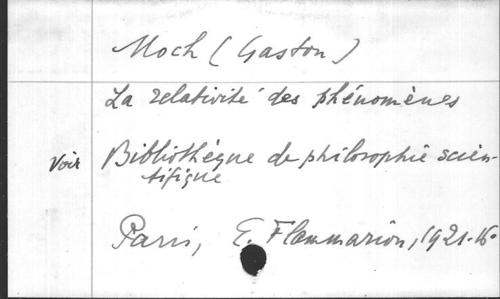 Moch (Gaston)
La relativité des phénomènes
Voir Bibliothèque de philosophie scien-
tifique
Paris, E. Flammarion, 1921.-16°